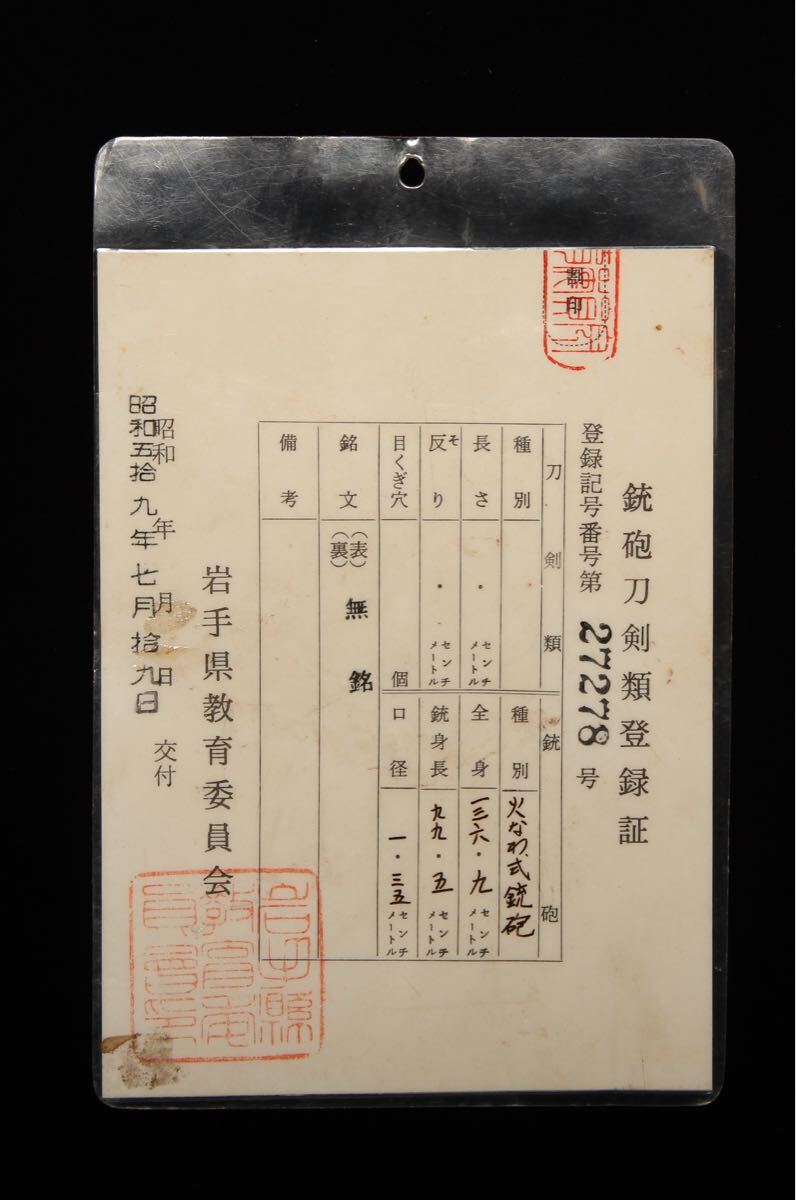 銃砲刀剣類登録証
登録記号番号第 27278 号
割印
刀剣類
種別
長さ ・ センチメートル
反り そ ・ センチメートル
目くぎ穴 個
銃砲
種別 火なわ式銃砲
全身 一三六・九 センチメートル
銃身長 九九・五 センチメートル
口径 一・三五 センチメートル
銘文 (表) 無銘
(裏)
備考
岩手県教育委員会
昭和 年 月 日 交付
昭和五拾九年七月拾九日
岩手縣
教育委
員會印